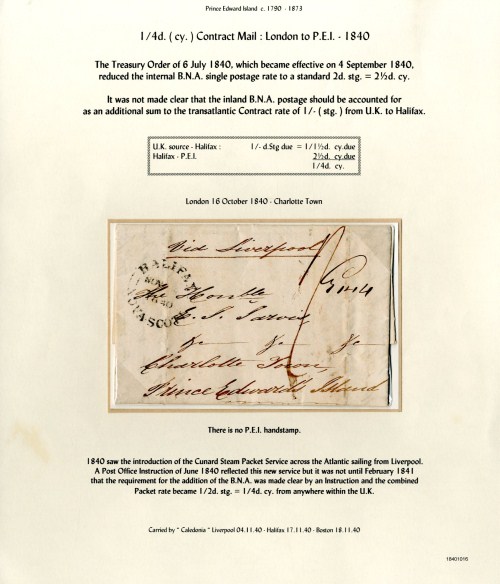 Prince Edward Island c. 1790 - 1873
1/4d. ( cy. ) Contract Mail : London to P.E.I. - 1840
The Treasury Order of 6 July 1840, which became effective on 4 September 1840,
reduced the internal B.N.A. single postage rate to a standard 2d. stg. = 2½d. cy.
It was not made clear that the inland B.N.A. postage should be accounted for
as an additional sum to the transatlantic Contract rate of 1/- ( stg. ) from U.K. to Halifax.
U.K. source - Halifax : 1/- d.Stg due = 1/1½d. cy.due
Halifax - P.E.I. 2½d. cy.due
1/4d. cy.
London 16 October 1840 - Charlotte Town
Via Liverpool
HALIFAX
NOV
1840
NOVA SCOTIA
The Honble
E. J. Jarvis
&c &c &c
Charlotte Town
Prince Edward's Island
There is no P.E.I. handstamp.
1840 saw the introduction of the Cunard Steam Packet Service across the Atlantic sailing from Liverpool.
A Post Office Instruction of June 1840 reflected this new service but it was not until February 1841
that the requirement for the addition of the B.N.A. was made clear by an Instruction and the combined
Packet rate became 1/2d. stg. = 1/4d. cy. from anywhere within the U.K.
Carried by " Caledonia " Liverpool 04.11.40 - Halifax 17.11.40 - Boston 18.11.40
18401016